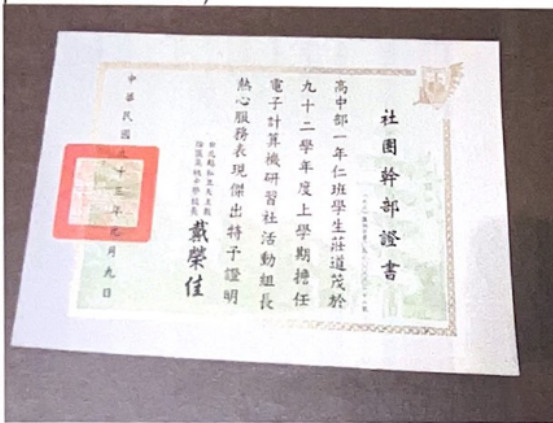 社團幹部證書
高中部一年仁班學生莊道茂於
九十二學年度上學期擔任
電子計算機研習社活動組長
熱心服務表現傑出特予證明
戴榮佳
中華民國九十三年元月九日